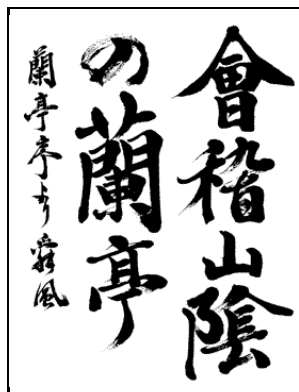 會稽山陰
の蘭亭
蘭亭序より舜風